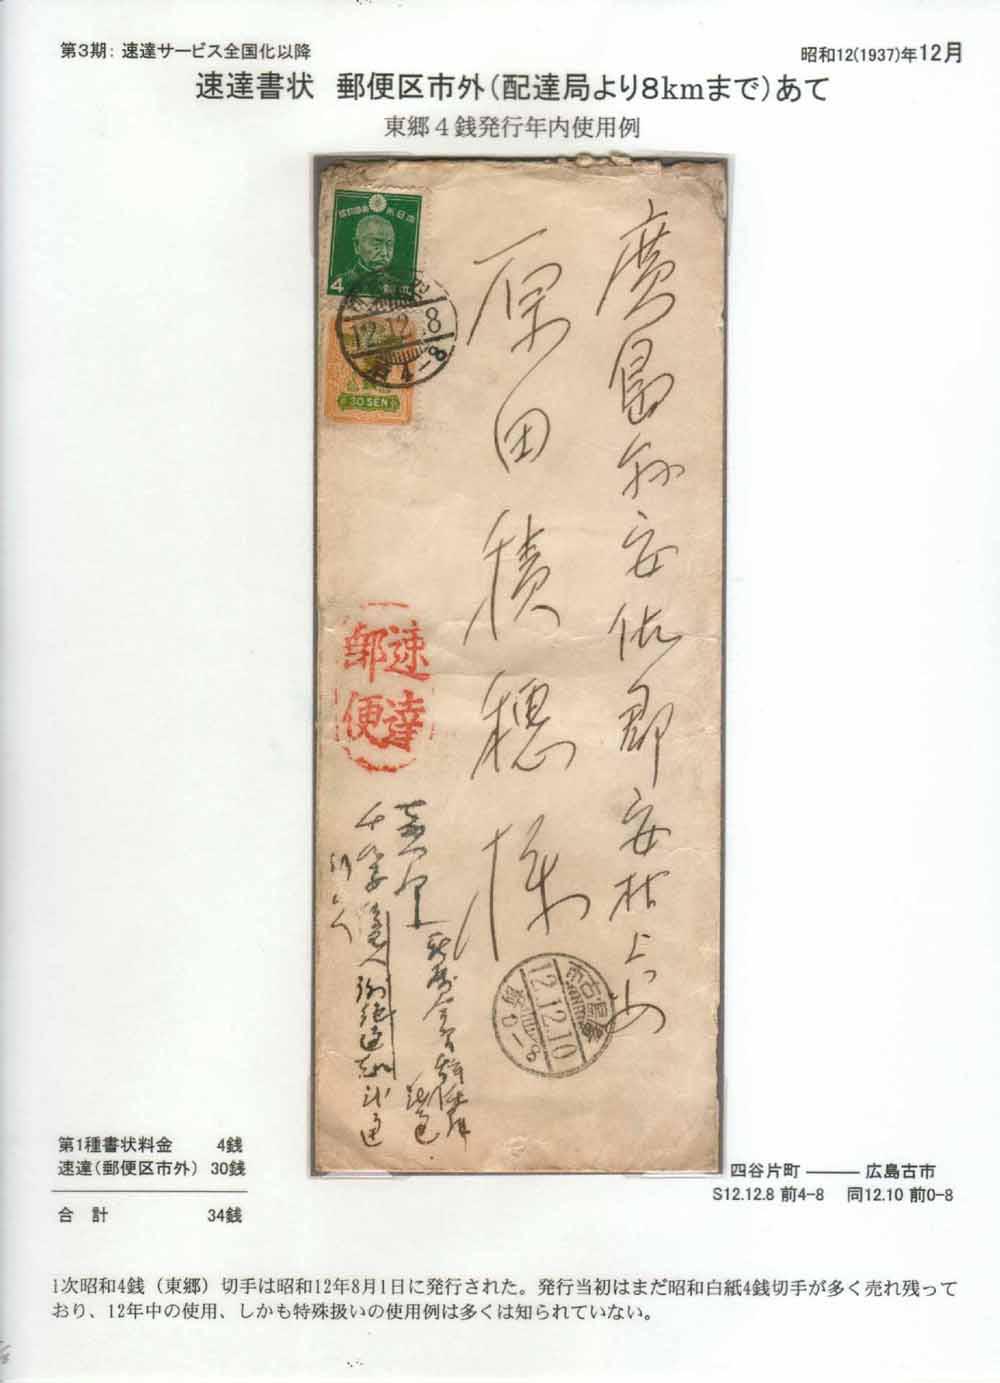 第3期: 速達サービス全国化以降
昭和12(1937)年12月
速達書状 郵便区市外(配達局より8kmまで)あて
東郷4銭発行年内使用例
廣島縣安佐郡安村上安
原田積穂様
4
12.12.8
30 SEN
速達
郵便
廣島古市
12.12.10
前0-8
第1種書状料金 4銭
速達(郵便区市外) 30銭
合 計 34銭
四谷片町 ――― 広島古市
S12.12.8 前4-8 同12.10 前0-8
1次昭和4銭(東郷)切手は昭和12年8月1日に発行された。発行当初はまだ昭和白紙4銭切手が多く売れ残って
おり、12年中の使用、しかも特殊扱いの使用例は多くは知られていない。